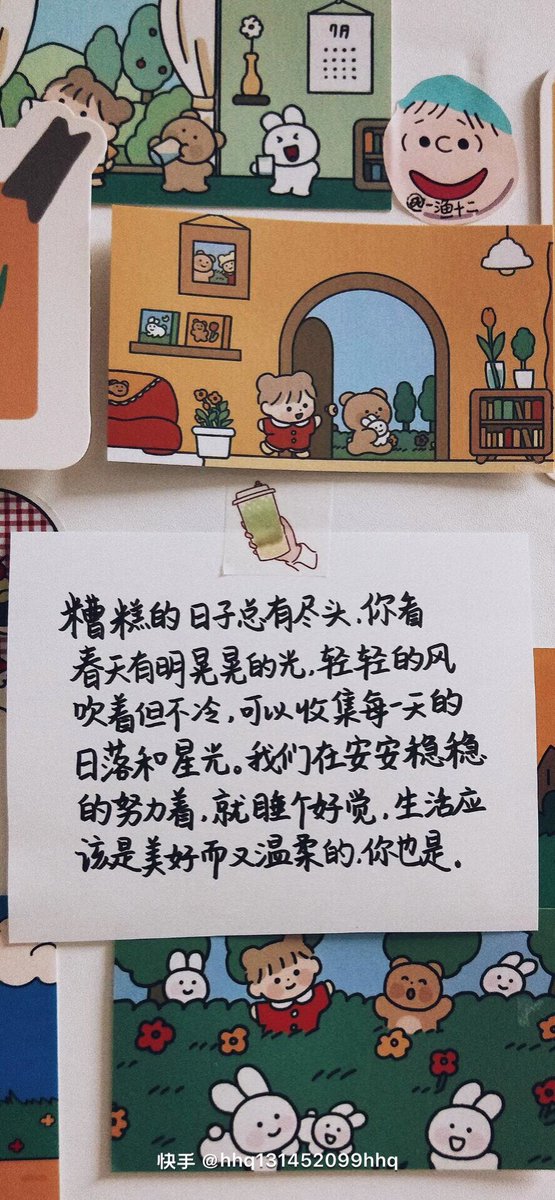 7月
@一渔十二
糟糕的日子总有尽头,你看
春天有明晃晃的光,轻轻的风
吹着但不冷,可以收集每一天的
日落和星光。我们在安安稳稳
的努力着,就睡个好觉,生活应
该是美好而又温柔的,你也是.
快手 @hhq131452099hhq